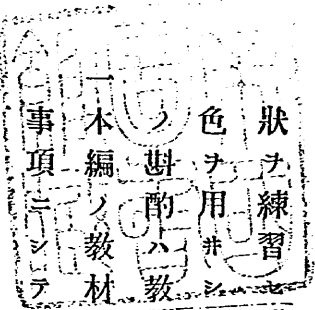 狀ヲ練習セ
色ヲ用井シ
ノ斟酌ハ敎
一本編ノ敎材
事項ニシテ